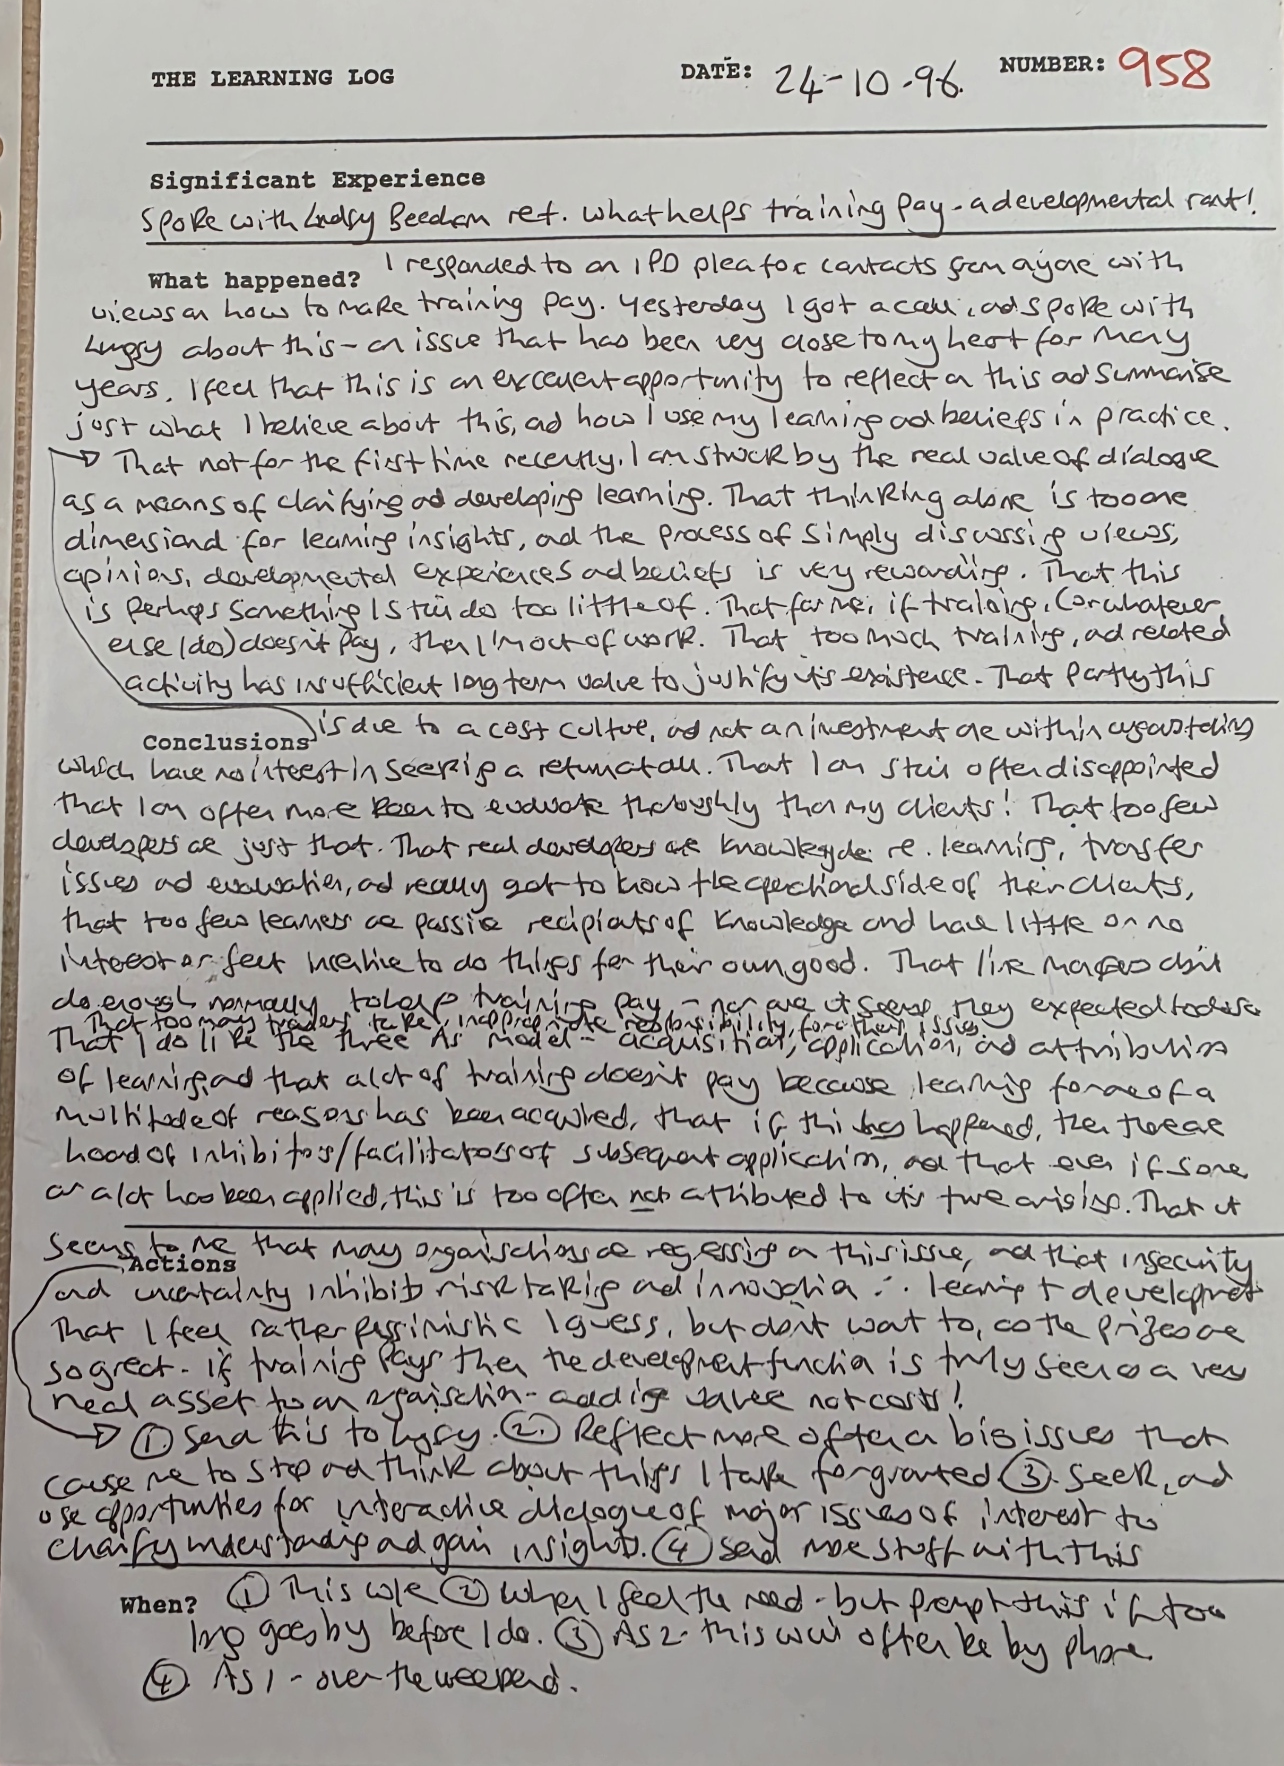 THE LEARNING LOG
DATE: 24-10-96.
NUMBER: 958
Significant Experience
Spoke with Lindsy Beecham ref. what helps training pay - a developmental rant!
What happened? I responded to an IPD plea for contacts from anyone with
views on how to make training pay. Yesterday I got a call, and spoke with
about this - an issue that has been very close to my heart for many
years. I feel that this is an excellent opportunity to reflect on this and summarise
just what I believe about this, and how I use my learning and beliefs in practice.
→ That not for the first time recently, I am struck by the real value of dialogue
as a means of clarifying and developing learning. That thinking alone is too one
dimensional for learning insights, and the process of simply discussing views,
opinions, developmental experiences and beliefs is very rewarding. That this
is perhaps something I still do too little of. That for me, if training, (or whatever
else I do) doesn't pay, then I'm out of work. That too much training, and related
activity has insufficient long term value to justify its existence. That partly this
Conclusions is due to a cost culture, and not an investment one within organisations
which have no interest in seeking a return at all. That I am still often disappointed
that I am often more keen to evaluate thoroughly than my clients! That too few
developers are just that. That real developers are knowledgeable re. learning, transfer
issues and evaluation, and really get to know the operational side of their clients,
that too few learners are passive recipients of knowledge and have little or no
interest or felt incentive to do things for their own good. That line managers don't
do enough normally to help training pay - nor are it seems they expected to
That too many trainers take inappropriate responsibility for other issues
That I do like the three As model - acquisition, application, and attribution
of learning, and that a lot of training doesn't pay because learning for one of a
multitude of reasons has been acquired, that if this has happened, then there are
head of inhibitors/facilitators of subsequent application, and that even if some
or a lot has been applied, this is too often not attributed to its true origins. That it
seems to me that many organisations are regressing on this issue, and that insecurity
Actions
and uncertainty inhibit risk taking and innovation ∴ learning + development
That I feel rather pessimistic I guess, but don't want to, as the prizes are
so great. If training pays then the development function is truly seen as a very
real asset to an organisation - adding value not costs!
→ ① Send this to ② Reflect more often on big issues that
cause me to stop and think about things I take for granted ③ Seek, and
use opportunities for interactive dialogue of major issues of interest to
clarify understanding and gain insights. ④ Send more stuff with this
When? ① This w/e ② When I feel the need - but prompt this if too
long goes by before I do. ③ As 2 - this will often be by phone.
④ As 1 - over the weekend.